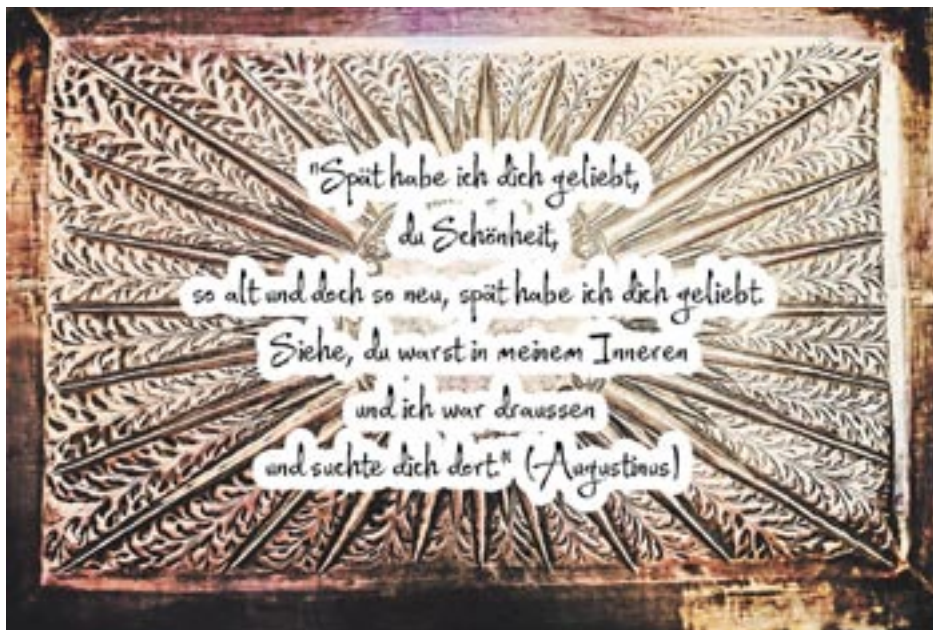 "Spät habe ich dich geliebt,
du Schönheit,
so alt und doch so neu, spät habe ich dich geliebt.
Siehe, du warst in meinem Inneren
und ich war draussen
und suchte dich dort." (Augustinus)